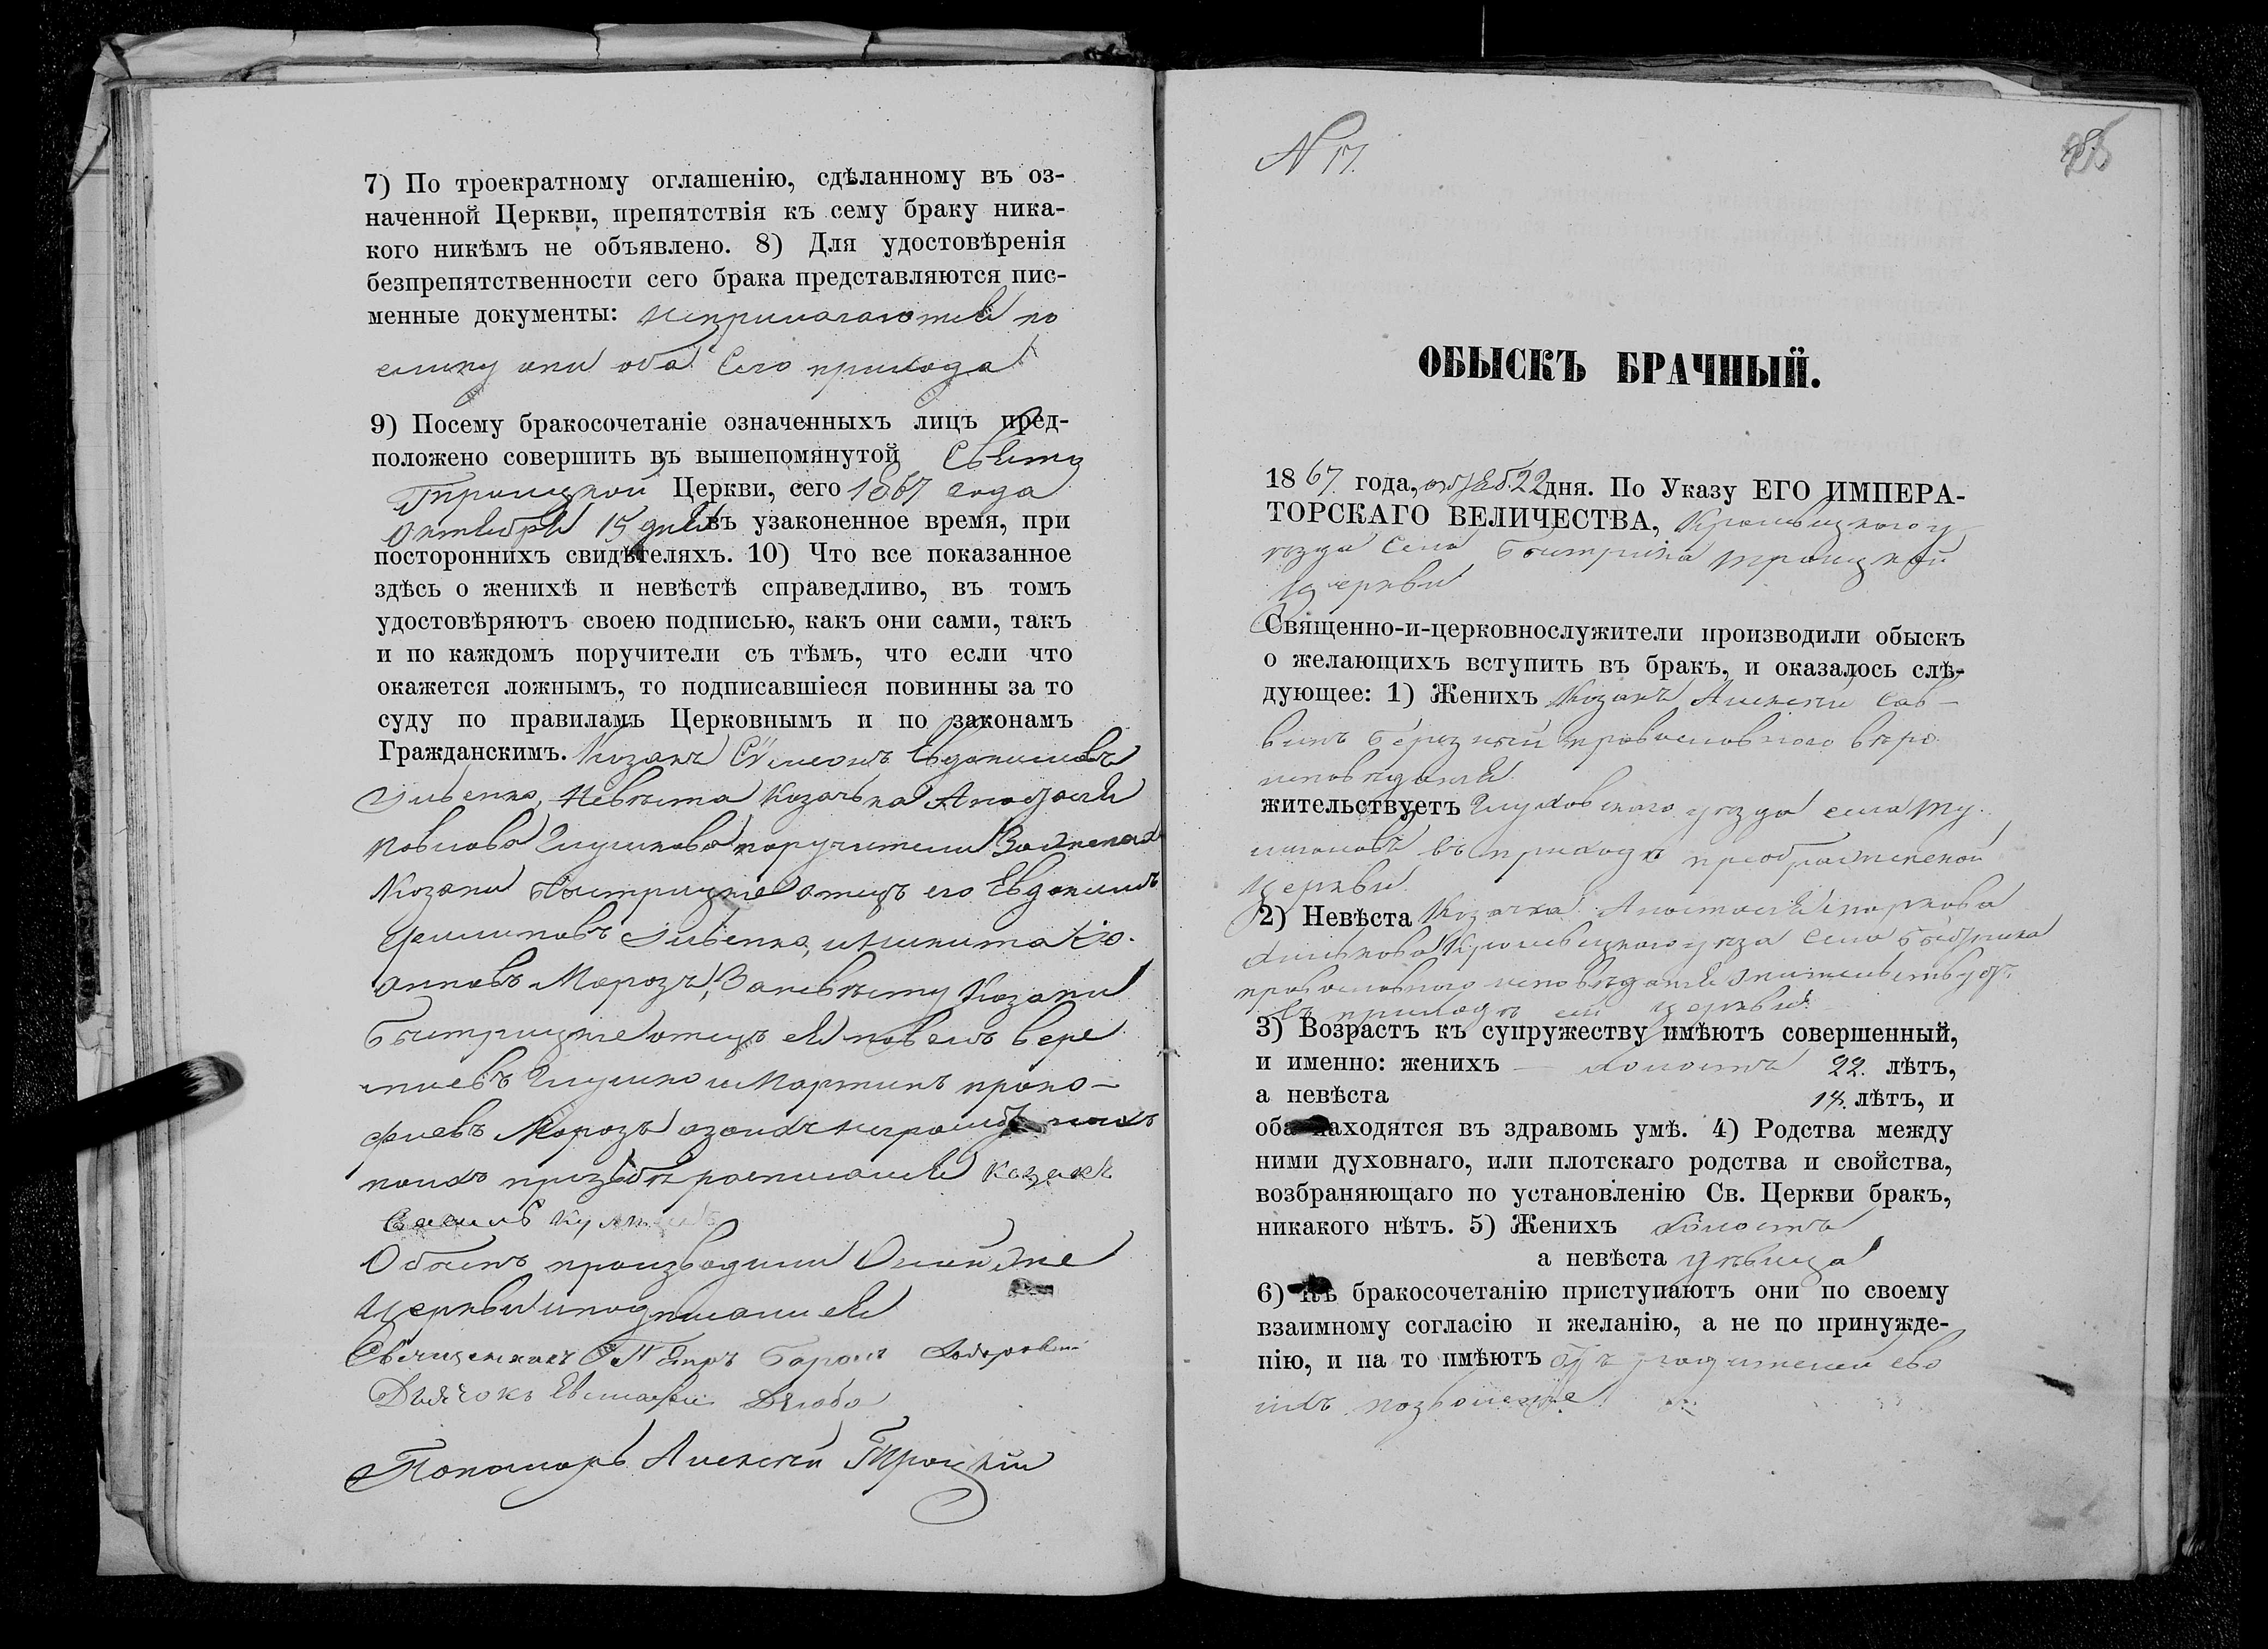 7) По троекратному оглашенію, сдѣланному въ оз-
наченной Церкви, препятствія къ сему браку ника-
кого никѣмъ не объявлено. 8) Для удостовѣренія
безпрепятственности сего брака представляются пис-
менные документы: неприлагаются по
елику они оба сего прихода
9) Посему бракосочетаніе означенныхъ лицъ пред-
положено совершить въ вышепомянутой Свято
Троицкой Церкви, сего 1867 года
октября 15 дня въ узаконенное время, при
постороннихъ свидѣтеляхъ. 10) Что все показанное
здѣсь о женихѣ и невѣстѣ справедливо, въ томъ
удостовѣряютъ своею подписью, какъ они сами, такъ
и по каждомъ поручители съ тѣмъ, что если что
окажется ложнымъ, то подписавшіеся повинны за то
суду по правиламъ Церковнымъ и по законамъ
Гражданскимъ. Козакъ Сѵмеонъ Евдокимовъ
Невѣста козачка
Павлова Глушкова поручители
Козаки Быстрицкіе отецъ его Евдокимъ
Никита Іо-
анновъ Морозъ, За невѣсту Козаки
Быстрицкіе отецъ ея Павелъ
Глушко и Мартинъ Проко-
фіевъ Морозъ а за ихъ неграмот
росписался козакъ
Обыскъ производили
церкви и подписались
Священникъ Петръ
Дьячокъ Евстафій
Пономарь Алексѣй Троцкій
N 17.
ОБЫСКЪ БРАЧНЫЙ.
1867 года, октяб. 22 дня. По Указу ЕГО ИМПЕРА-
ТОРСКАГО ВЕЛИЧЕСТВА, Кролевецкого у
ѣзда села Быстрика Троицкой
Церкви
Священно-и-церковнослужители производили обыскъ
о желающихъ вступить въ бракъ, и оказалось слѣ-
дующее: 1) Женихъ Козакъ Алексѣй Сав-
винъ православного вѣро
исповѣданія
жительствуетъ Глуховского уѣзда села Ту
лиголовъ въ приходѣ преображенской
Церкви.
2) Невѣста Козачка
Кролевецкого уѣзда села Быстрика
православного исповѣданія жительствуетъ
въ приходѣ сей церкви
3) Возрастъ къ супружеству имѣютъ совершенный,
и именно: женихъ — холостъ 22. лѣтъ,
а невѣста 18. лѣтъ, и
оба находятся въ здравомъ умѣ. 4) Родства между
ними духовнаго, или плотскаго родства и свойства,
возбраняющаго по установленію Св. Церкви бракъ,
никакого нѣтъ. 5) Женихъ холостъ
а невѣста дѣвица
6) Къ бракосочетанію приступаютъ они по своему
взаимному согласію и желанію, а не по принужде-
нію, и на то имѣютъ отъ родителей сво
ихъ позволеніе